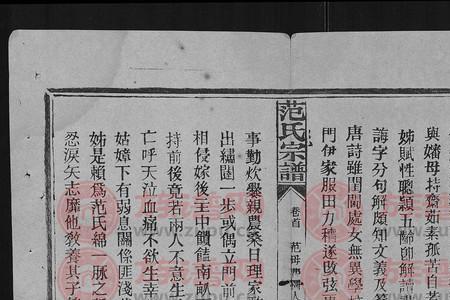 與嬸母持齋茹素孤苦自
姊賦性聰穎五歲卽解讀
講字分句解頗知文義及
唐詩雖閨閫處女無異學
門伊家服田力穡遂敗弦
范氏宗譜
卷首
范母
事勤炊爨親農桑日理家
出繡閨一步或偶立門前
相侵嫁後主中饋饁南畝
持前後竟若兩人不意生
亡呼天泣血痛不欲生幸
姑嫜下有弱息關係匪淺
姊是賴爲范氏綿一脉之
忍淚矢志靡他敎養其子